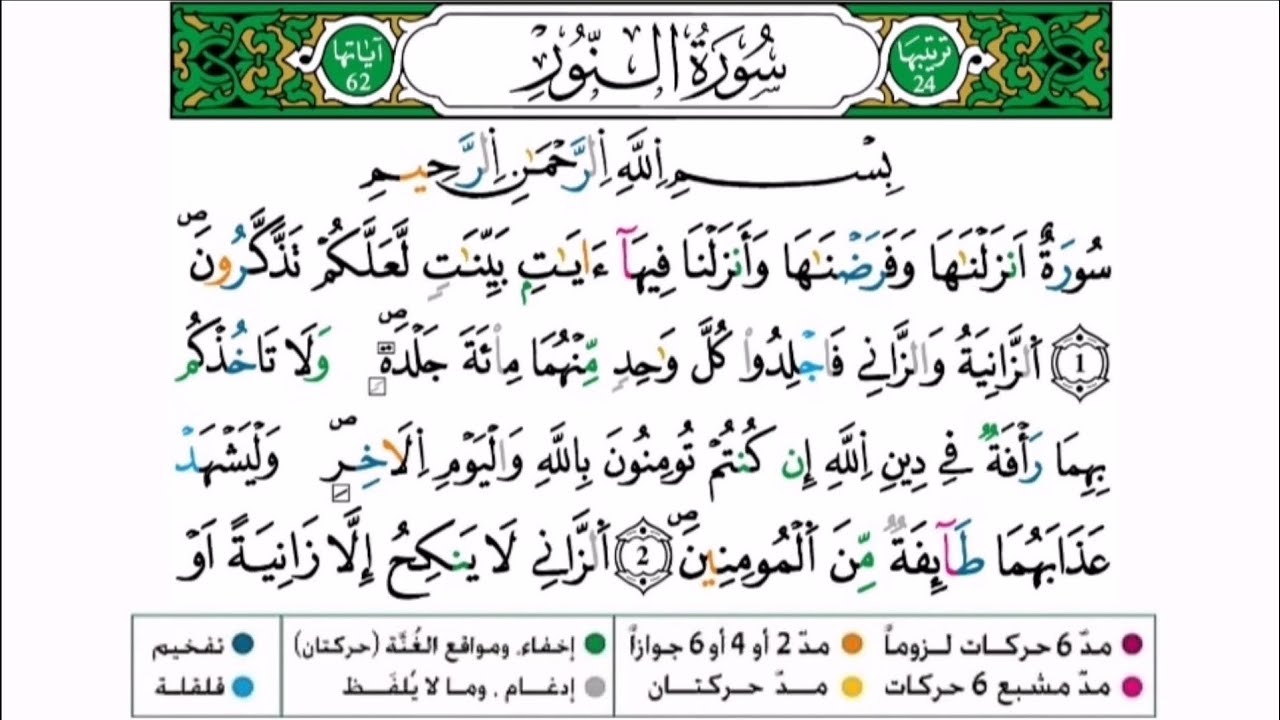 ترتيبها 24 سُورَةُ النُّورِ آياتها 62
بِسْمِ اِللَّهِ اِلرَّحْمَٰنِ اِلرَّحِيمِ
سُورَةٌ اَنزَلْنَٰهَا وَفَرَضْنَٰهَا وَأَنزَلْنَا فِيهَآ ءَايَٰتِۢ بَيِّنَٰتٖ لَّعَلَّكُمْ تَذَّكَّرُونَۖ
1 اَ۬لزَّانِيَةُ وَالزَّانِے فَاجْلِدُواْ كُلَّ وَٰحِدٖ مِّنْهُمَا مِاْئَةَ جَلْدَةٖۖ وَلَا تَاخُذْكُم
بِهِمَا رَأْفَةٞ فِے دِينِ اِللَّهِ إِن كُنتُمْ تُومِنُونَ بِاللَّهِ وَالْيَوْمِ اِلَاخِرِۖ وَلْيَشْهَدْ
عَذَابَهُمَا طَآئِفَةٞ مِّنَ اَ۬لْمُومِنِينَۖ 2 اَ۬لزَّانِے لَا يَنكِحُ إِلَّا زَانِيَةً اَوْ
مدّ 6 حركات لزوماً مدّ 2 أو 4 أو 6 جوازاً إخفاء، ومواقع الغُنَّة (حركتان) تفخيم
مدّ مشبع 6 حركات مدّ حركتان إدغام، وما لا يُلفَظ قلقلة